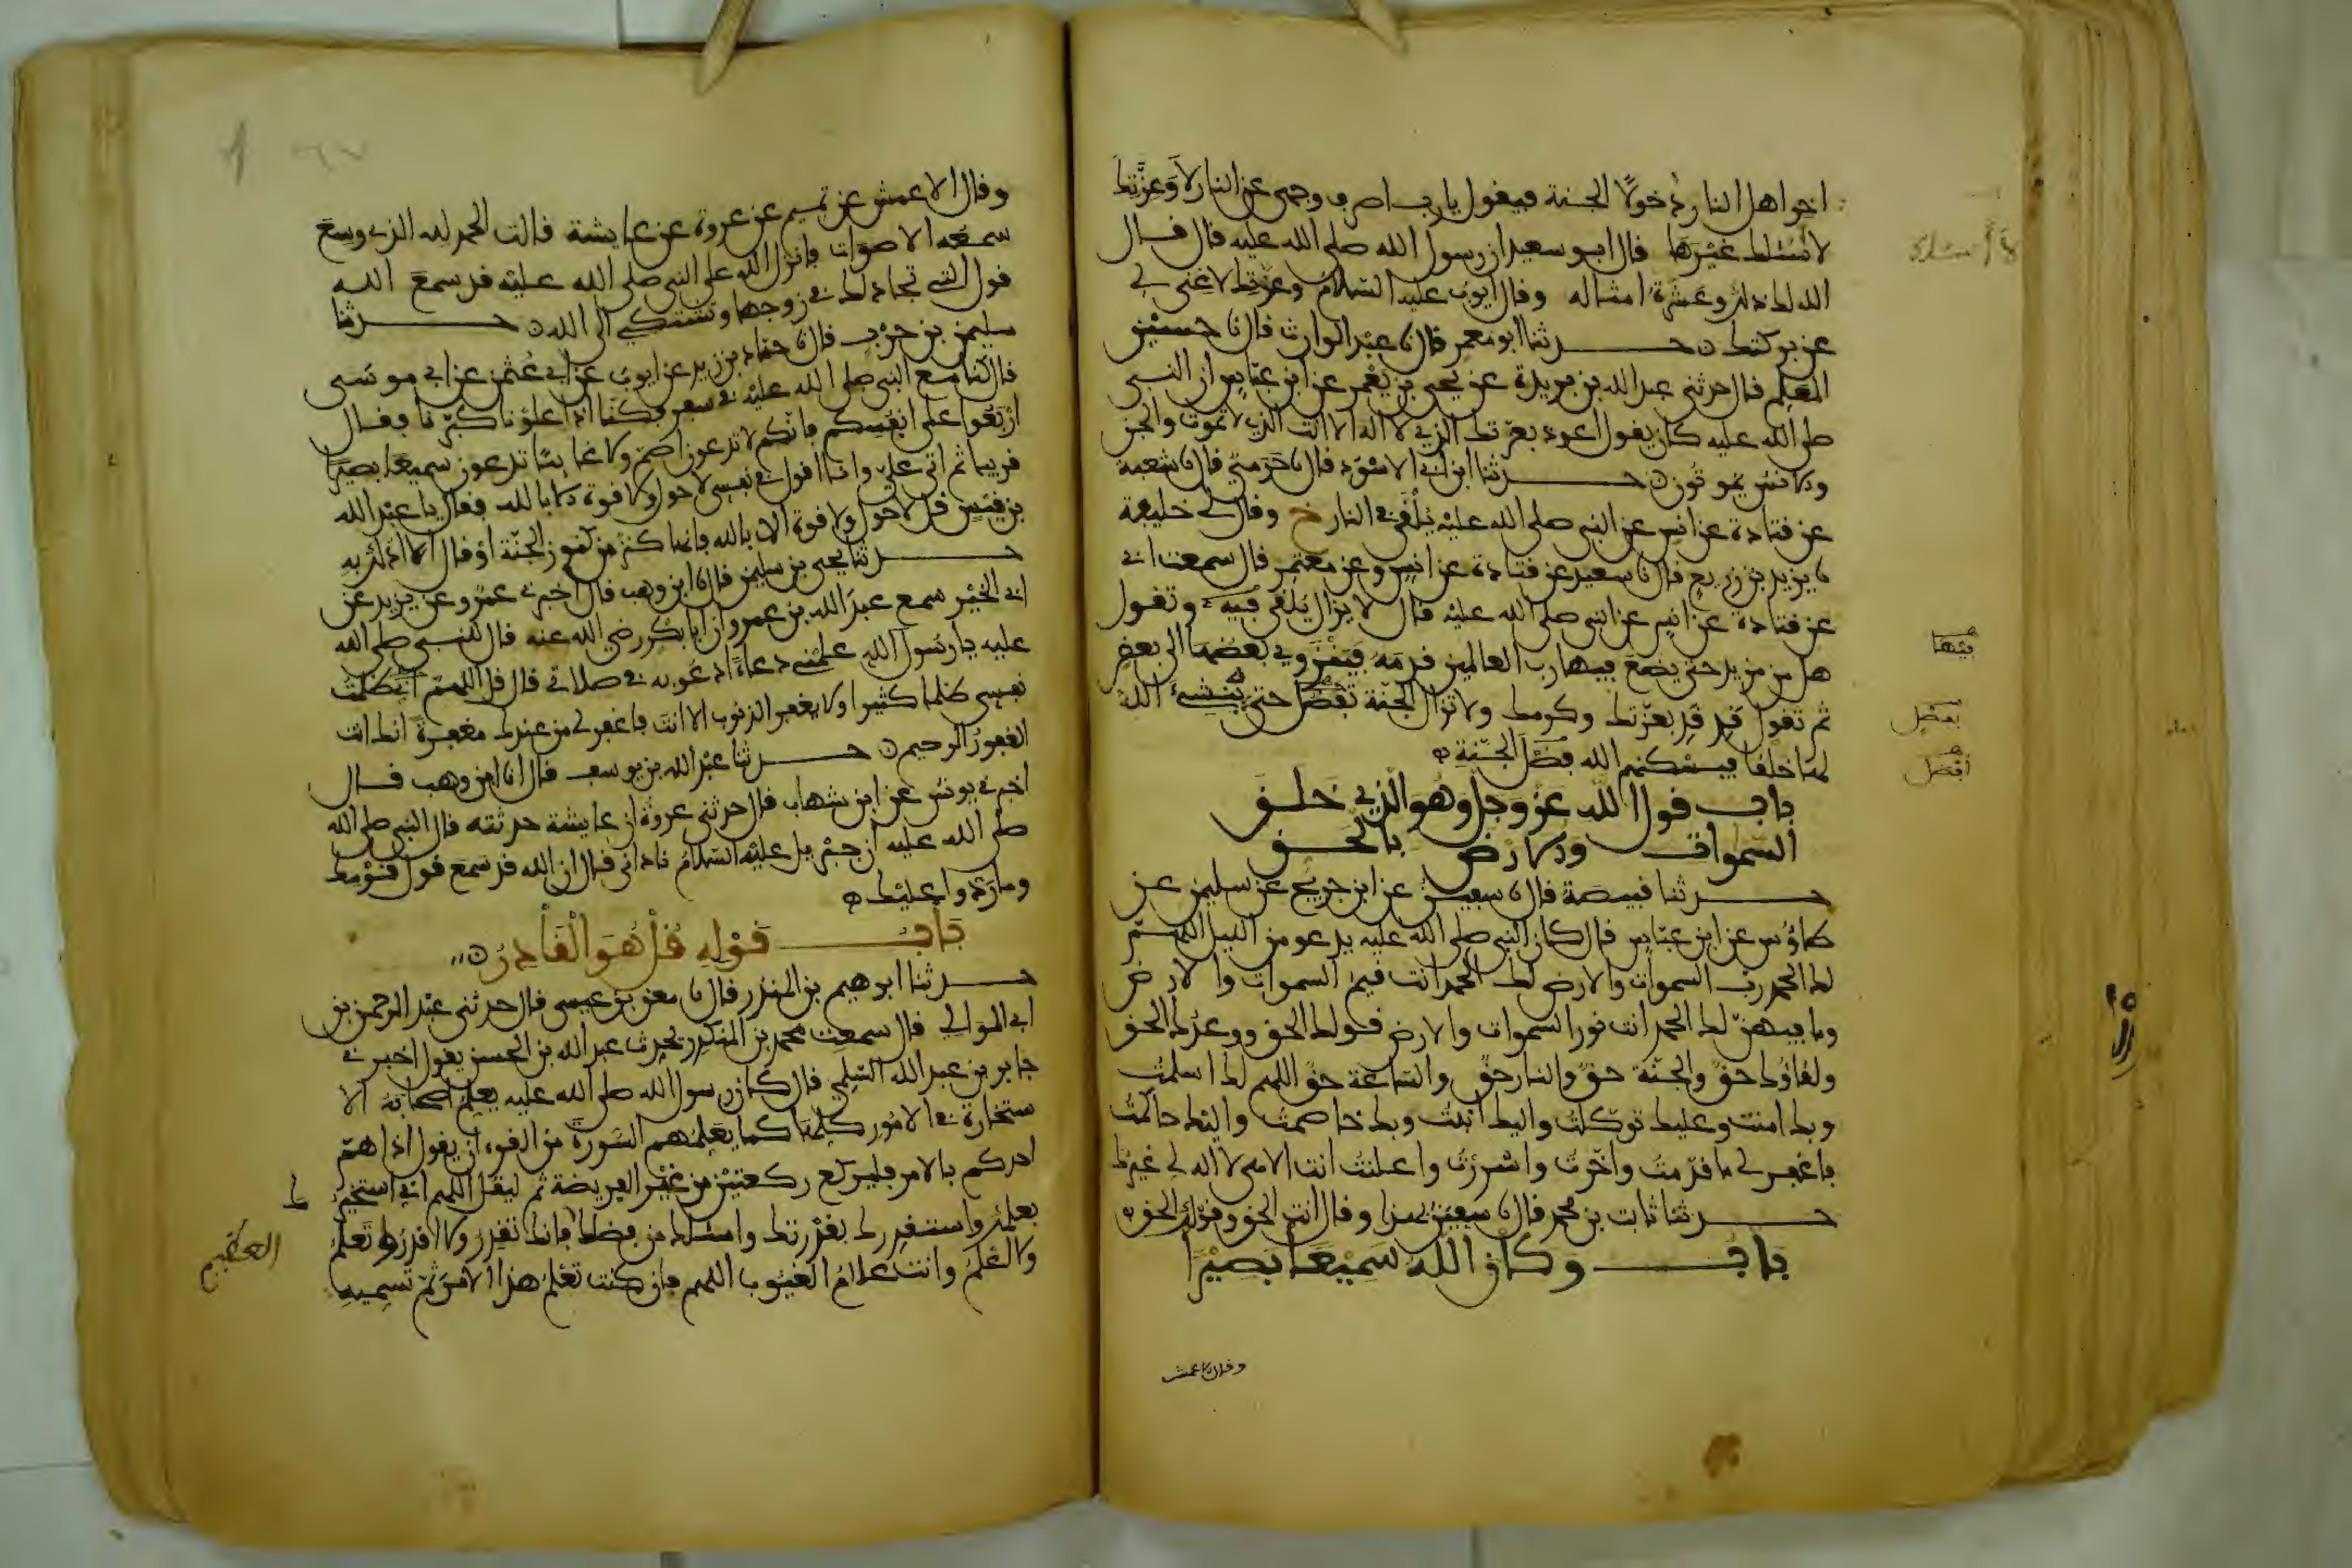 اخر اهل النار دخولا الجنة فيقول يا رب اصرف وجهي عن النار لا وعزتك
لا أسئلك غيرها قال ابو سعيد ان رسول الله صلى الله عليه قال قال
الله لك ذلك وعشرة امثاله وقال ايوب عليه السلام وعزتك لا غنى لي
عن بركتك حدثنا ابو معمر قال نا عبد الوارث قال نا حسين
المعلم قال حدثني عبد الله بن بريدة عن يحيى بن يعمر عن ابن عباس ان النبي
صلى الله عليه كان يقول اعوذ بعزتك الذي لا اله الا انت الذي لا تموت والجن
والانس يموتون حدثنا ابن ابي الاسود قال نا حرمي قال نا شعبة
عن قتادة عن انس عن النبي صلى الله عليه يُلْقَى في النار خ وقال لي خليفة
نا يزيد بن زريع قال نا سعيد عن قتادة عن انس وعن معتمر قال سمعت ابي
عن قتادة عن انس عن النبي صلى الله عليه قال لا يزال يلقى فيه وتقول
هل من مزيد حتى يضع فيها رب العالمين قدمه فينزوي بعضها الى بعض
ثم تقول قد قد بعزتك وكرمك ولا تزال الجنة تفضل حتى ينشئ الله
لها خلقا فيسكنهم الله فضل الجنة
باب قول الله عز وجل وهو الذي خلق
السموات والارض بالحق
حدثنا قبيصة قال نا سفين عن ابن جريج عن سليمن عن
طاوس عن ابن عباس قال كان النبي صلى الله عليه يدعو من الليل اللهم
لك الحمد رب السموات والارض لك الحمد انت قيم السموات والارض
وما فيهن لك الحمد انت نور السموات والارض قولك الحق ووعدك الحق
ولقاؤك حق والجنة حق والنار حق والساعة حق اللهم لك اسلمت
وبك امنت وعليك توكلت واليك انبت وبك خاصمت واليك حاكمت
فاغفر لي ما قدمت واخرت واسررت واعلنت انت الاهي لا اله لي غيرك
حدثنا ثابت بن محمد قال نا سفين بهذا وقال انت الحق وقولك الحق
باب وكان الله سميعا بصيرا
وقال الاعمش
فيها
بفضل
افضل
وقال الاعمش عن تميم عن عروة عن عايشة قالت الحمد لله الذي وسع
سمعه الاصوات فانزل الله على النبي صلى الله عليه قد سمع الله
قول التي تجادلك في زوجها وتشتكي الى الله حدثنا
سليمن بن حرب قال نا حماد بن زيد عن ايوب عن ابي عثمن عن ابي موسى
قال كنا مع النبي صلى الله عليه في سفر فكنا اذا علونا كبرنا فقال
اربعوا على انفسكم فانكم لا تدعون اصم ولا غايبا تدعون سميعا بصيرا
قريبا ثم اتى علي وانا اقول في نفسي لا حول ولا قوة الا بالله فقال يا عبد الله
بن قيس قل لا حول ولا قوة الا بالله فانها كنز من كنوز الجنة او قال الا ادلك به
حدثنا يحيى بن سليمن قال نا ابن وهب قال اخبرني عمرو عن يزيد عن
ابي الخير سمع عبد الله بن عمرو ان ابا بكر رضي الله عنه قال للنبي صلى الله
عليه يا رسول الله علمني دعاء ادعو به في صلاتي قال قل اللهم اني ظلمت
نفسي ظلما كثيرا ولا يغفر الذنوب الا انت فاغفر لي من عندك مغفرة انك انت
الغفور الرحيم حدثنا عبد الله بن يوسف قال انا ابن وهب قال
اخبرني يونس عن ابن شهاب قال حدثني عروة ان عايشة حدثته قال النبي صلى الله
صلى الله عليه ان جبريل عليه السلام ناداني قال ان الله قد سمع قول قومك
وما ردوا عليك
باب قوله قل هو القادر
حدثنا ابرهيم بن المنذر قال نا معن بن عيسى قال حدثني عبد الرحمن بن
ابي الموالي قال سمعت محمد بن المنكدر يحدث عبد الله بن الحسن يقول اخبرني
جابر بن عبد الله السلمي قال كان رسول الله صلى الله عليه يعلم اصحابه الا
ستخارة في الامور كلها كما يعلمهم السورة من القرءان يقول اذا هم
احدكم بالامر فليركع ركعتين من غير الفريضة ثم ليقل اللهم اني استخيرك
بعلمك واستقدرك بقدرتك واسئلك من فضلك فانك تقدر ولا اقدر وتعلم
ولا اعلم وانت علام الغيوب اللهم فان كنت تعلم هذا الامر ثم تسميه
العظيم